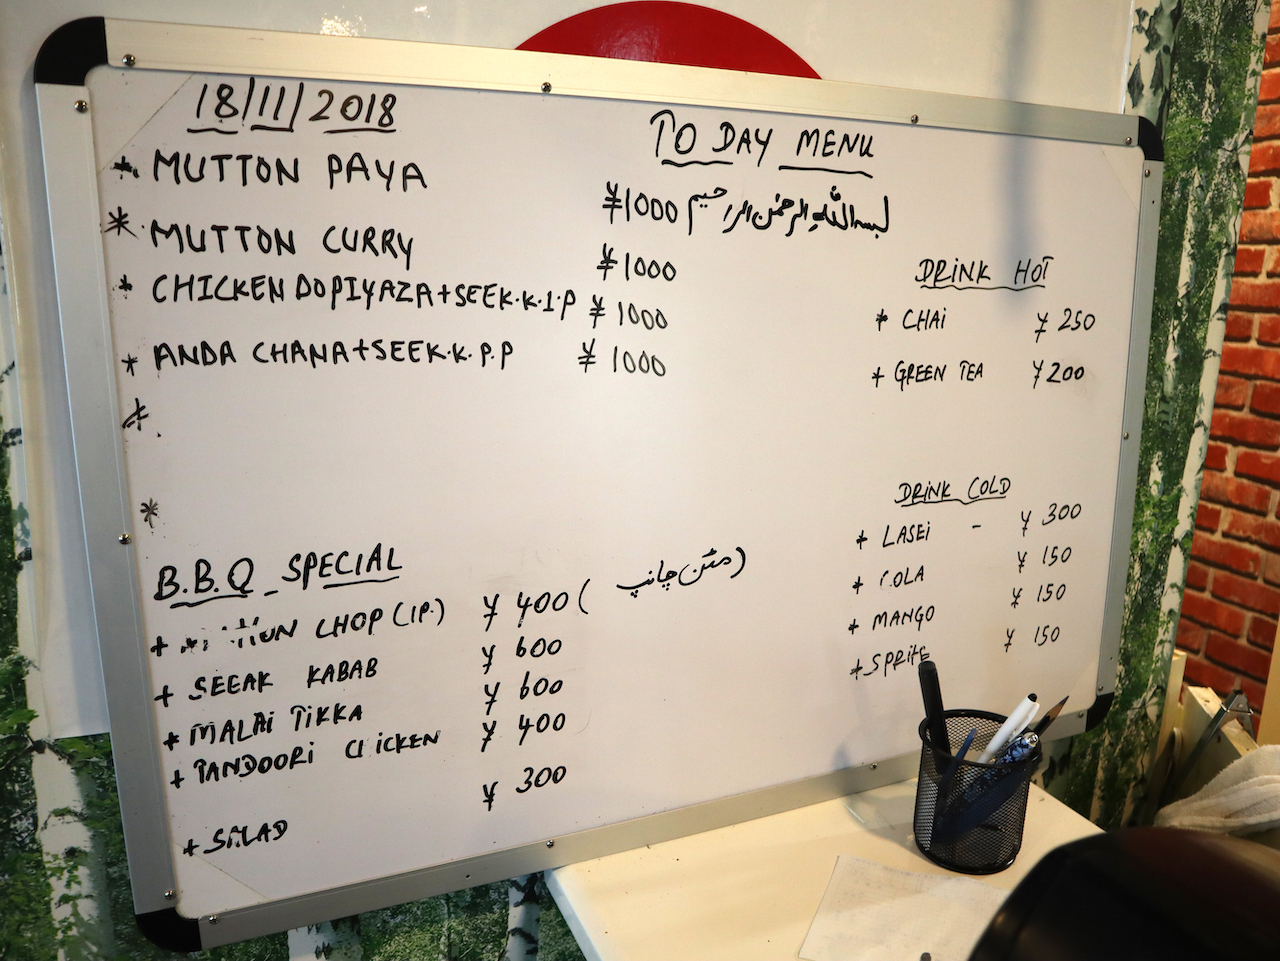 18/11/2018
TO DAY MENU
* MUTTON PAYA ¥1000
بسم الله الرحمن الرحیم
* MUTTON CURRY ¥1000
* CHICKEN DOPIYAZA+SEEK.K.1.P ¥1000
* ANDA CHANA+SEEK.K.P.P ¥1000
*
*
DRINK HOT
* CHAI ¥250
+ GREEN TEA ¥200
DRINK COLD
+ LASEI - ¥300
+ COLA ¥150
+ MANGO ¥150
+ SPRITE ¥150
B.B.Q_SPECIAL
+ CHOP (1P.) ¥400 (مٹن چانپ)
+ SEEAK KABAB ¥600
+ MALAI TIKKA ¥600
+ TANDOORI CHICKEN ¥400
+ SALAD ¥300